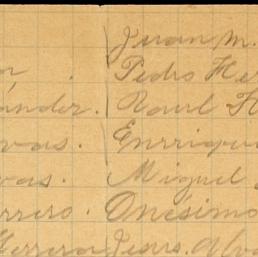 Juan M.
. Pedro Her
ández. Raul H
vas. Enrriqu
vas. Miguel
rrero. Onésimo
Herrera Jesus. Alva